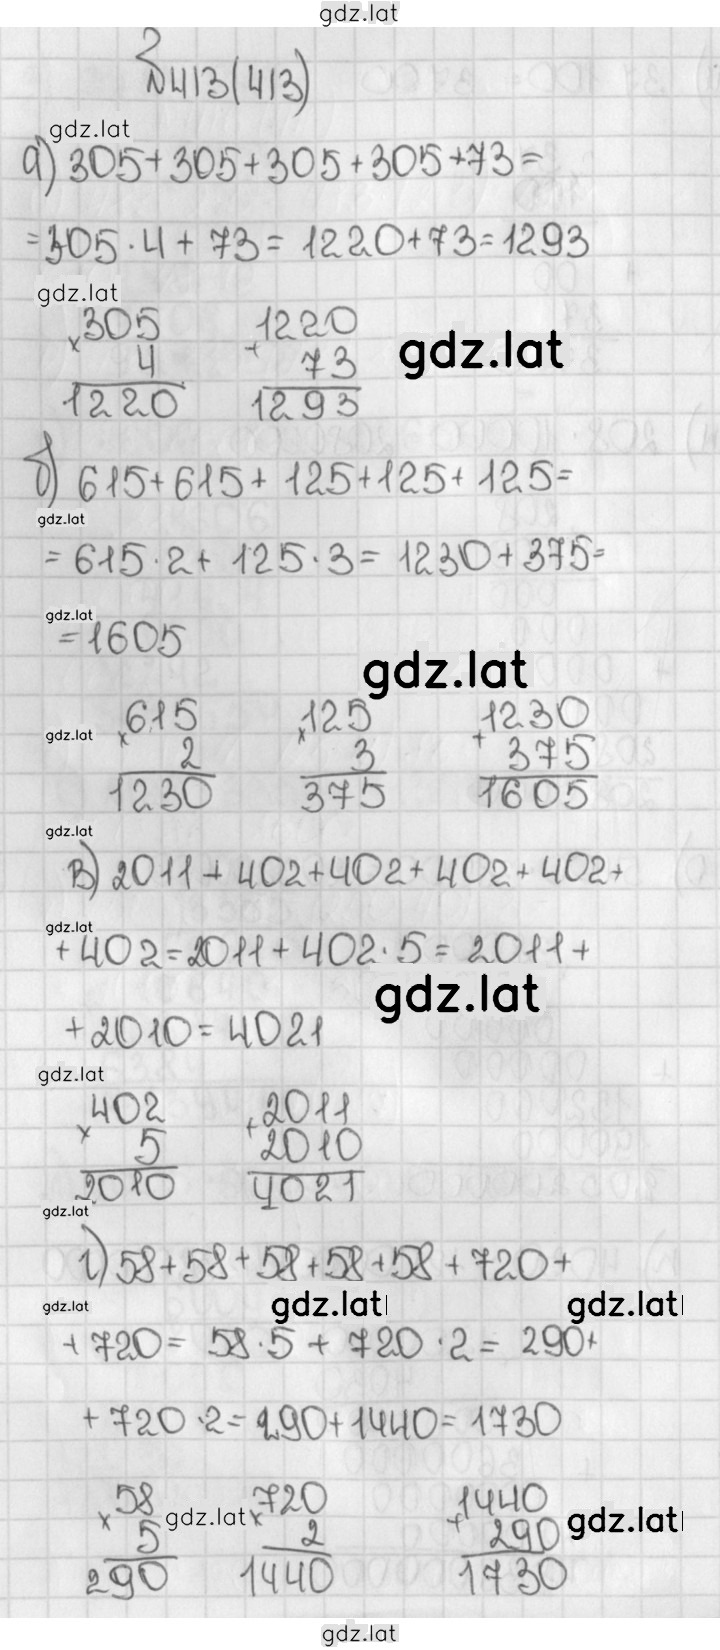 gdz.lat
№413(413)
gdz.lat
а) 305+305+305+305+73=
=305·4+73=1220+73=1293
gdz.lat
305 1220
× 4 + 73 gdz.lat
1220 1293
б) 615+615+125+125+125=
gdz.lat
=615·2+125·3=1230+375=
gdz.lat
=1605
gdz.lat
615 125 1230
gdz.lat × 2 × 3 + 375
1230 375 1605
gdz.lat
в) 2011+402+402+402+402+
gdz.lat
+402=2011+402·5=2011+
gdz.lat
+2010=4021
gdz.lat
402 2011
× 5 + 2010
2010 4021
gdz.lat
г) 58+58+58+58+58+720+
gdz.lat gdz.lat gdz.lat
+720=58·5+720·2=290+
+720·2=290+1440=1730
58 720 1440
× 5 gdz.lat × 2 + 290 gdz.lat
290 1440 1730
gdz.lat